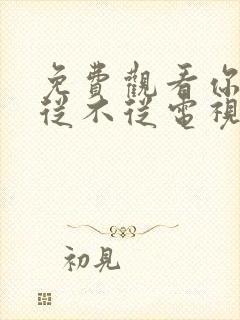 免費觀看你
從不從電視
初見